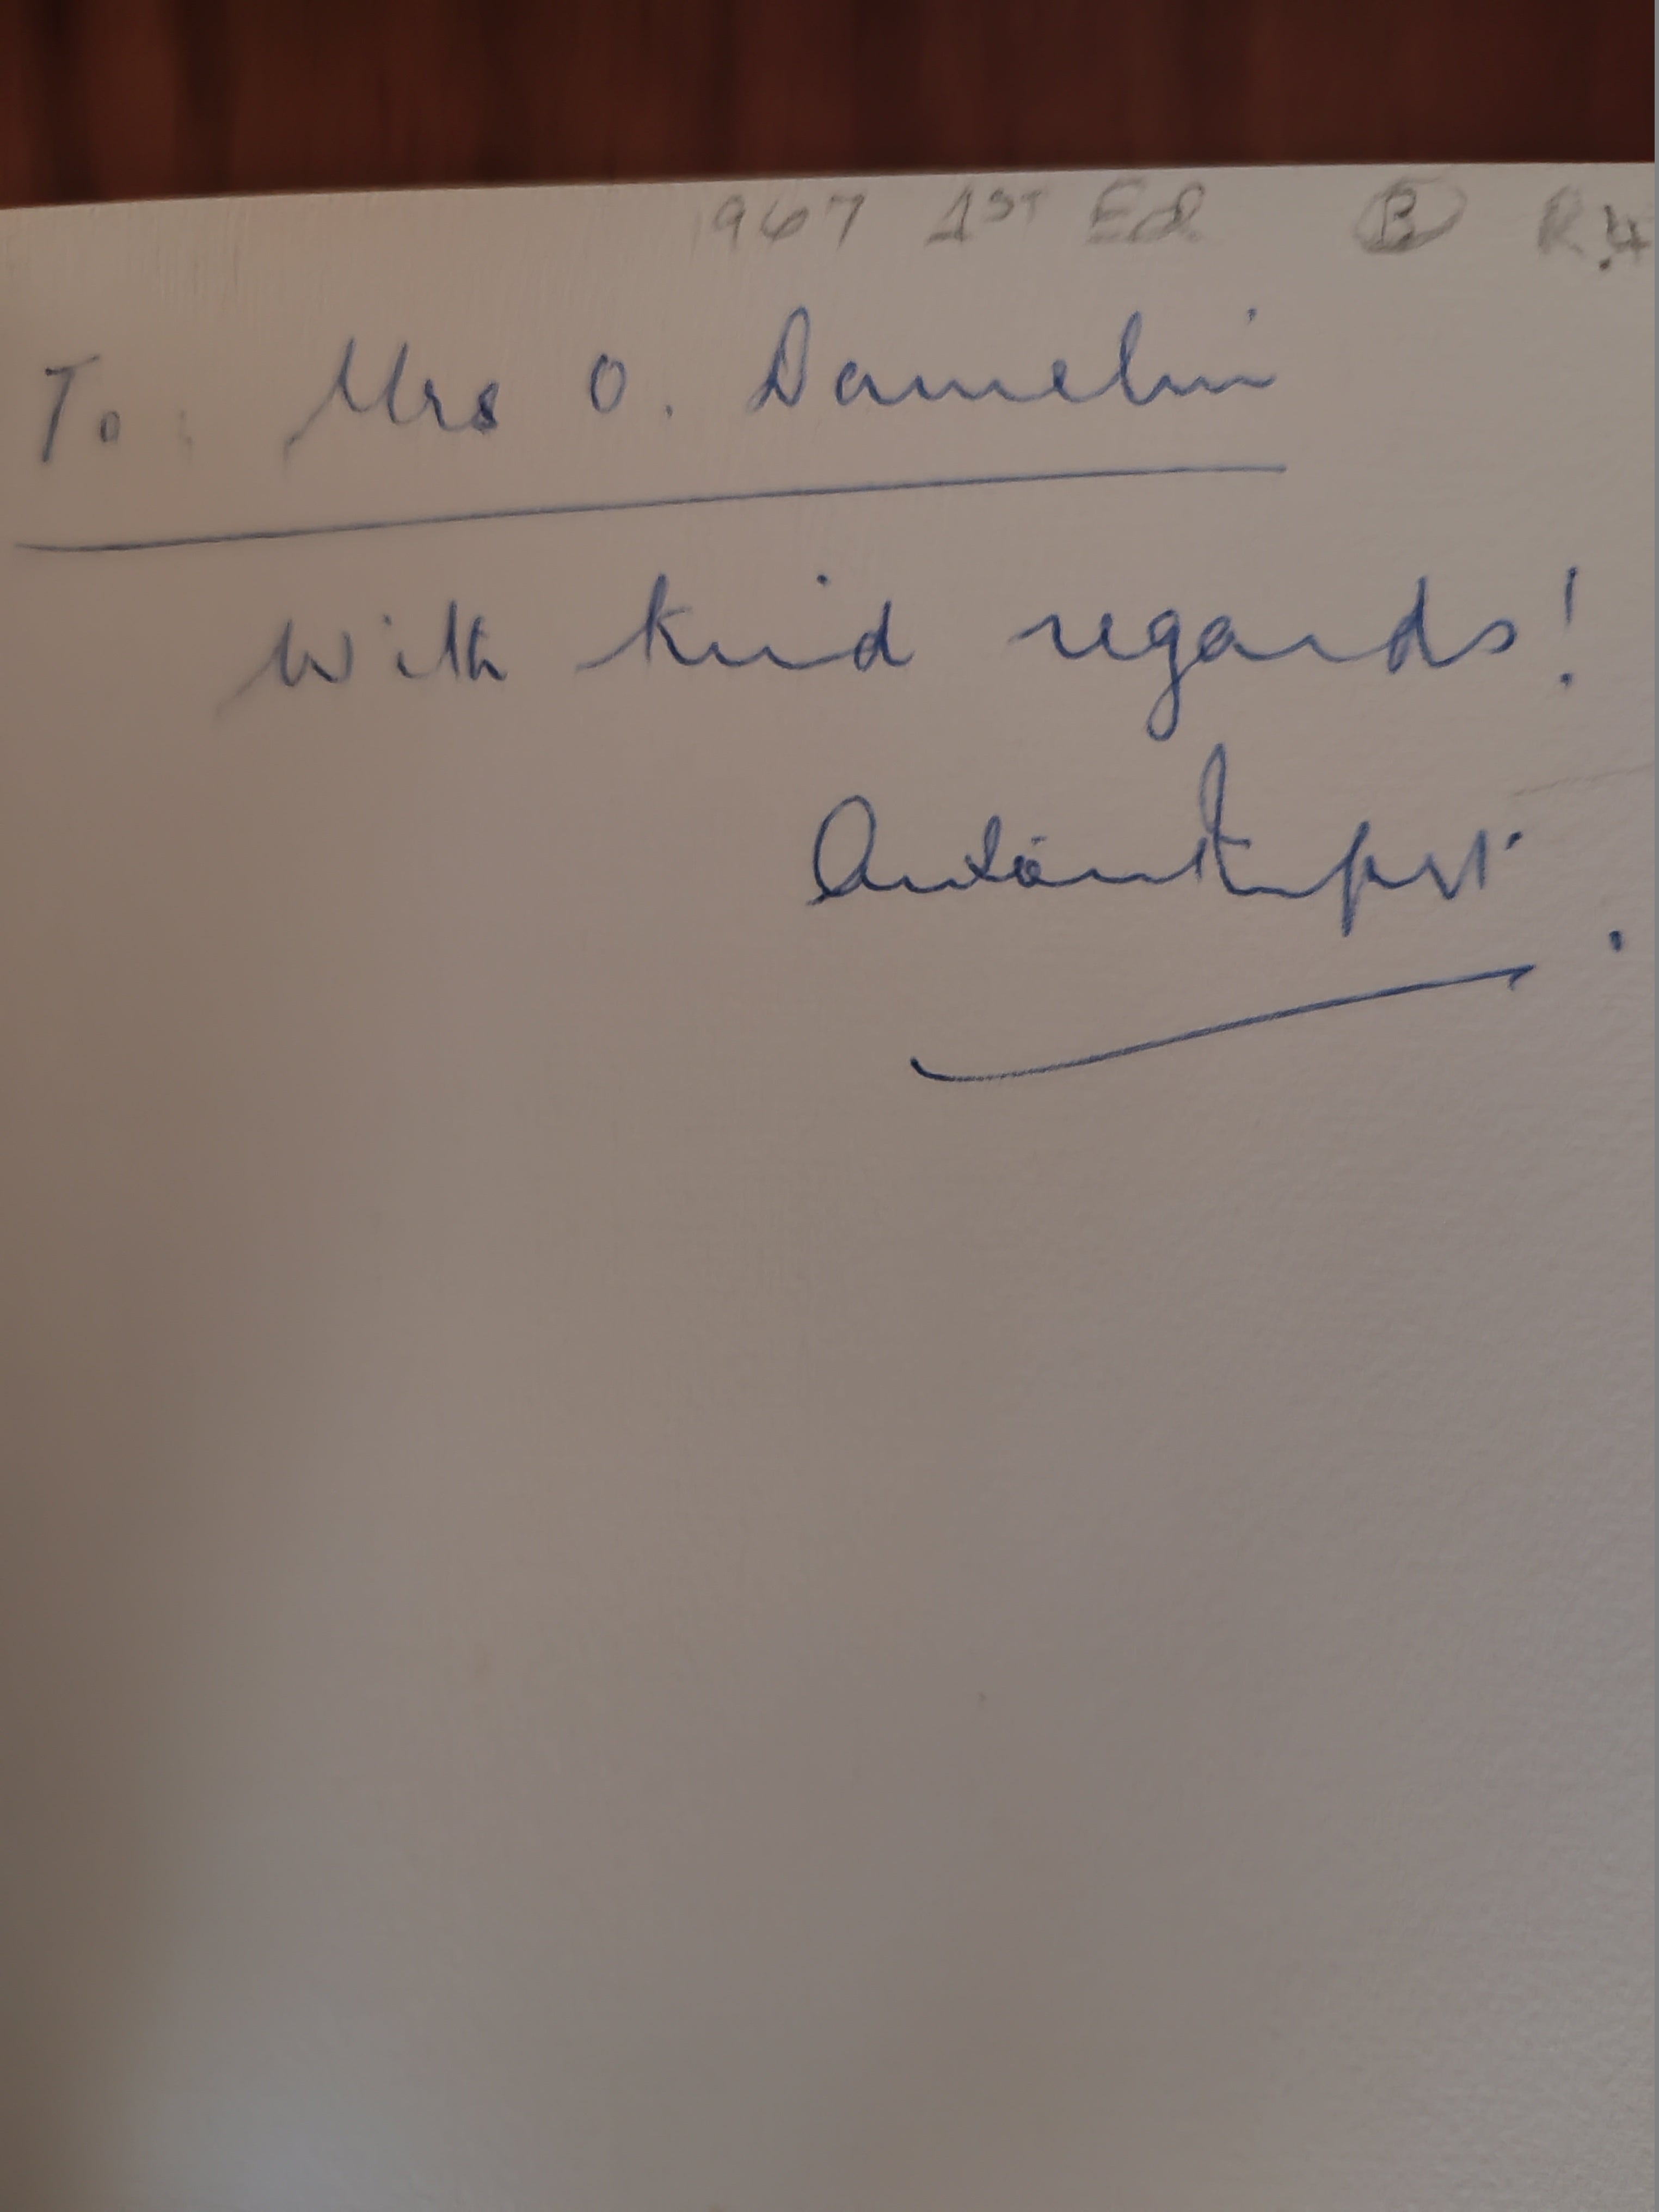 1967 1ST Ed B R.4
To: Mrs O. Damelin
With kind regards!